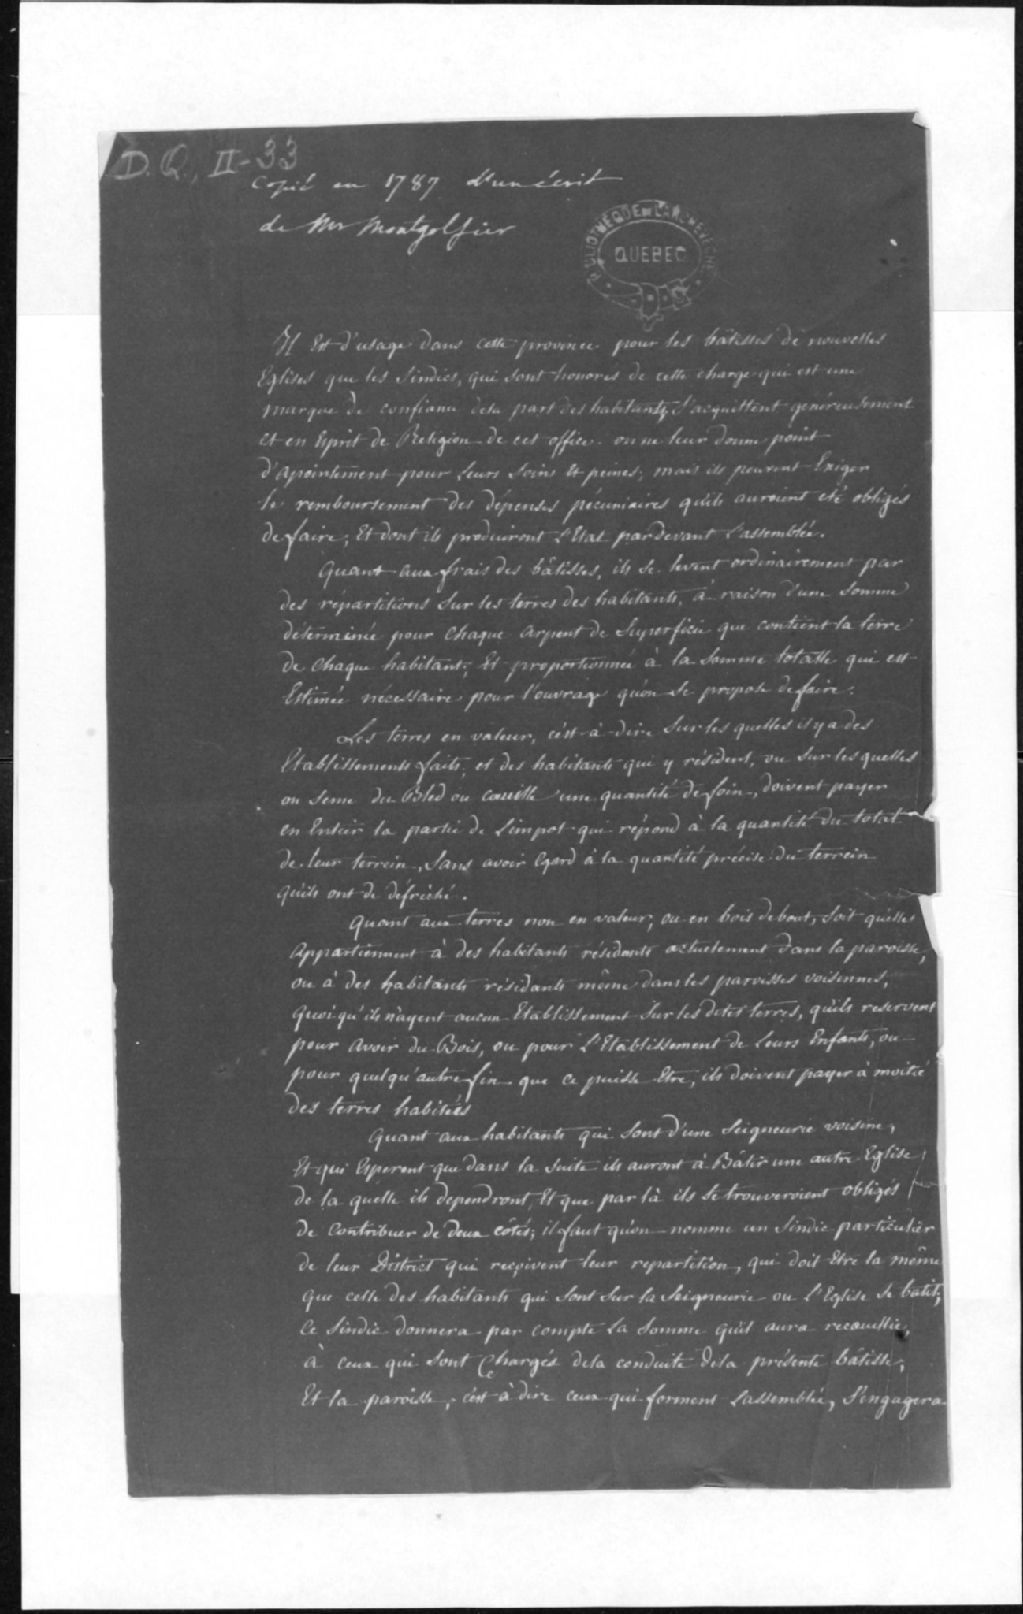 D. Q., II-33
Copié en 1787 d'un écrit
de Mr Montgolfier
BIBLIOTHEQUE DE L'ARCHEVÊCHÉ
QUEBEC
Il Est d'usage dans cette province pour les bâtisses de nouvelles
Eglises que les Sindics, qui sont honorés de cette charge qui est une
marque de confiance dela part des habitants, s'acquittent généreusement
et en Esprit de Religion de cet office. on ne leur donne point
d'apointement pour leurs soins Et peines; mais ils peuvent Exiger
le remboursement des dépenses pécuniaires qu'ils auroient eté obligés
de faire; Et dont ils produiront l'Etat pardevant l'assemblée.
Quant aux frais des bâtisses, ils se levent ordinairement par
des répartitions sur les terres des habitants, à raison d'une somme
déterminée pour chaque arpent de superficie que contient la terre
de chaque habitant; Et proportionnée à la somme totalle qui est
Estimée nécessaire pour l'ouvrage qu'on se propose de faire.
Les terres en valeur, c'est à dire sur les quelles il y a des
Etablissements faits, et des habitants qui y résident, ou sur les quelles
on seme du Bled ou cueille une quantité de foin, doivent payer
en Entier la partie de l'impot qui répond à la quantité du total
de leur terrein, sans avoir Egard à la quantité précise du terrein
qu'ils ont de défriché.
Quant aux terres non en valeur; ou en bois debout, soit qu'elles
appartiennent à des habitants résidants actuelement dans la paroisse,
ou à des habitants résidants même dans les paroisses voisennes,
quoiqu'ils n'ayent aucun Etablissement sur les dites terres, qu'ils reservent
pour avoir du Bois, ou pour l'Etablissement de leurs Enfants, ou
pour quelqu'autre fin que ce puisse Etre, ils doivent payer à moitié
des terres habitées
Quant aux habitants qui sont d'une Seigneurie voisine,
Et qui Esperent que dans la suite ils auront à Bâtir une autre Eglise
de la quelle ils dependront, Et que par là ils se trouveroient obligés
de contribuer de deux côtés; il faut qu'on nomme un Sindic particulier
de leur District qui reçoivent leur repartition, qui doit Etre la même
que celle des habitants qui sont sur la Seigneurie ou l'Eglise se batit;
Ce Sindic donnera par compte la somme qu'il aura recueillie,
à ceux qui sont Chargés dela conduite dela présente bâtisse,
Et la paroisse, c'est à dire ceux qui forment l'assemblée, s'engagera